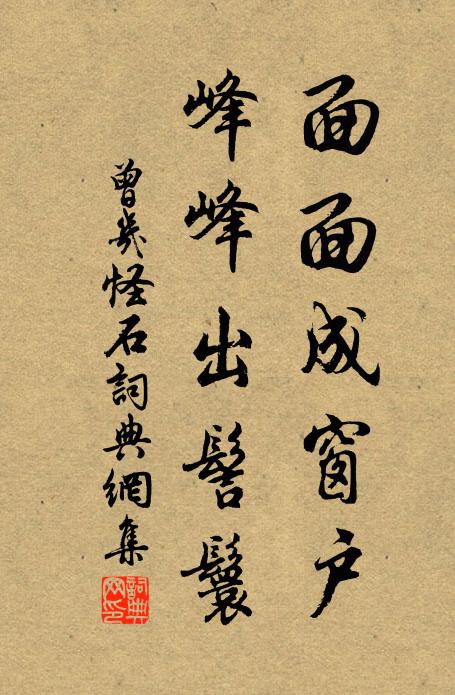 面面成窗户
峰峰出髻鬟
曾幾怪石詞典網集
詞典网印